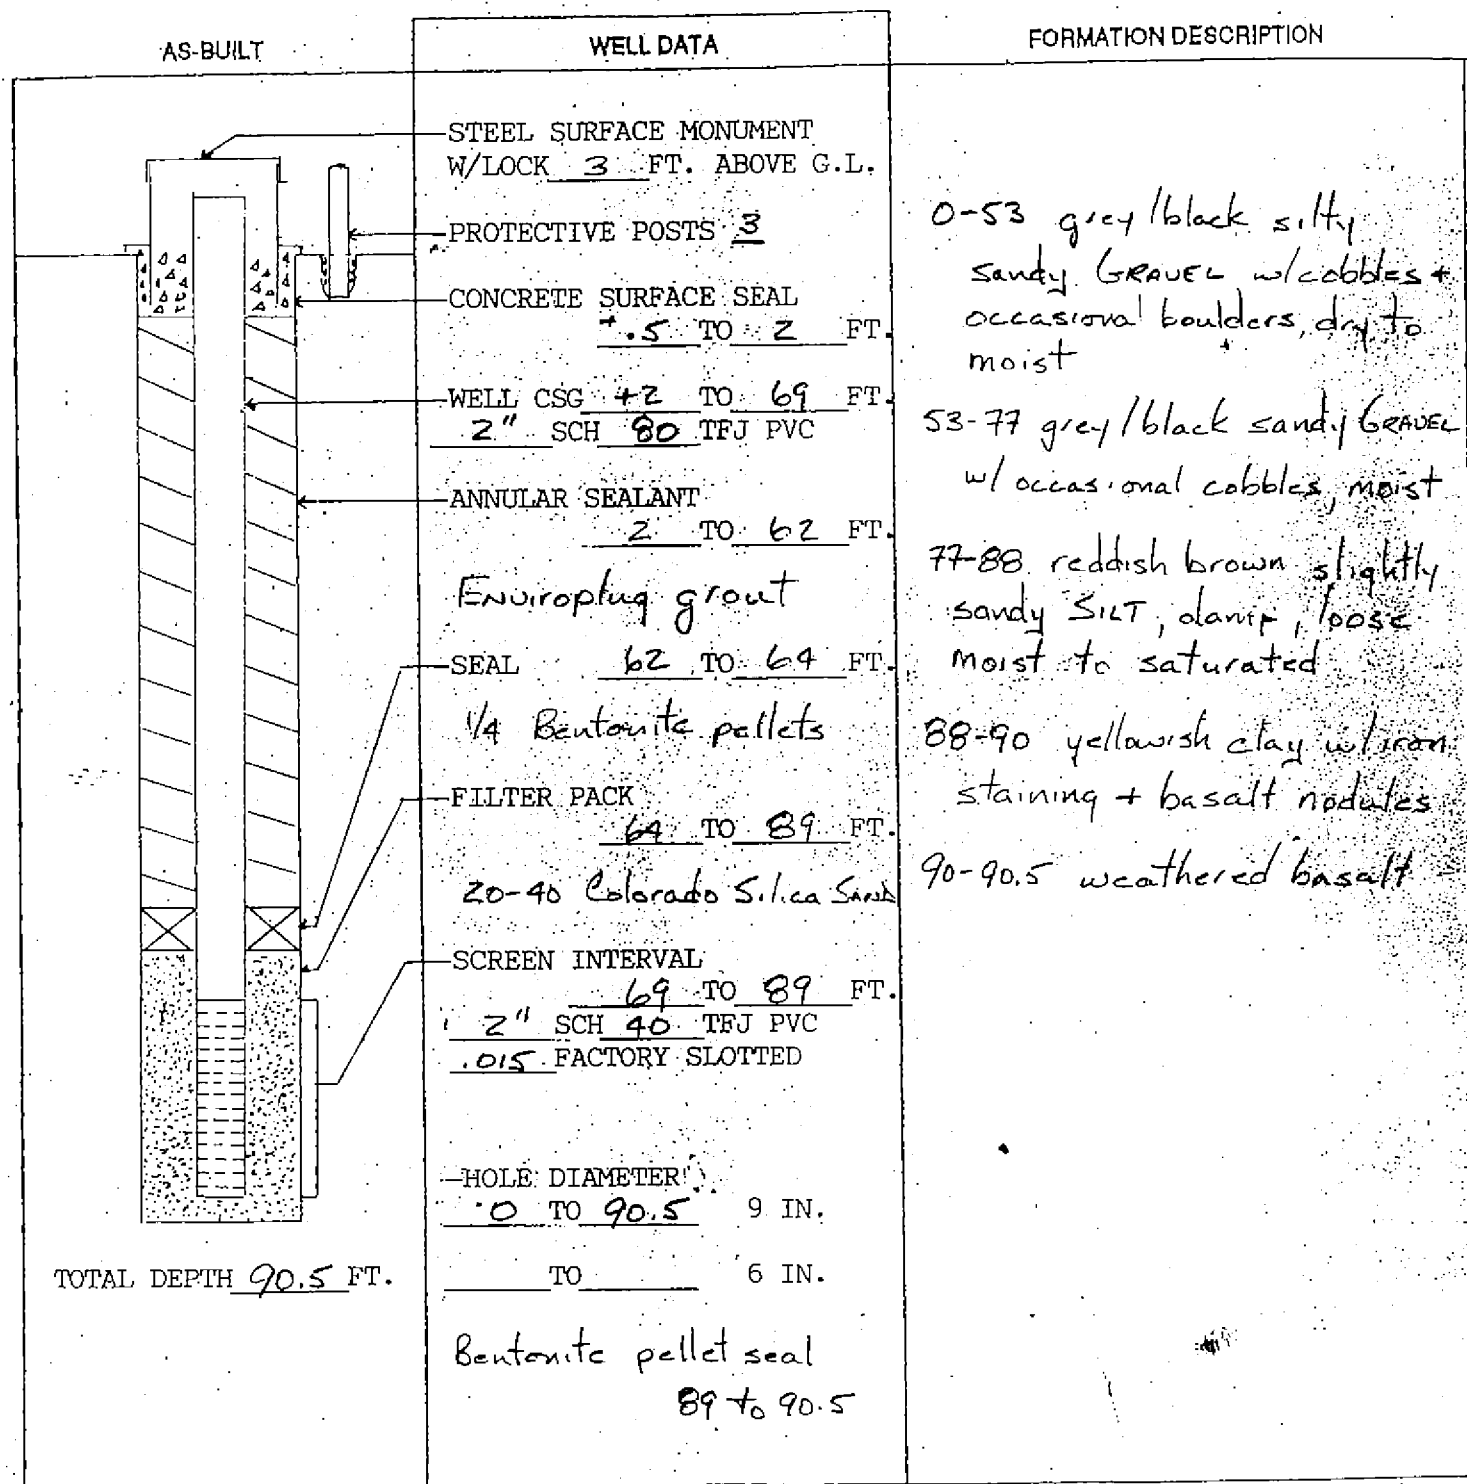 AS-BUILT
WELL DATA
FORMATION DESCRIPTION
STEEL SURFACE MONUMENT
W/LOCK 3 FT. ABOVE G.L.
PROTECTIVE POSTS 3
CONCRETE SURFACE SEAL
+.5 TO 2 FT.
WELL CSG +2 TO 69 FT.
2" SCH 80 TFJ PVC
ANNULAR SEALANT
2 TO 62 FT.
Enviroplug grout
SEAL 62 TO 64 FT.
1/4 Bentonite pellets
FILTER PACK
64 TO 89 FT.
20-40 Colorado Silica Sand
SCREEN INTERVAL
69 TO 89 FT.
2" SCH 40 TFJ PVC
.015 FACTORY SLOTTED
HOLE DIAMETER
0 TO 90.5 9 IN.
TO 6 IN.
Bentonite pellet seal
89 to 90.5
TOTAL DEPTH 90.5 FT.
0-53 grey/black silty
sandy GRAVEL w/cobbles +
occasional boulders, dry to
moist
53-77 grey/black sandy GRAVEL
w/ occasional cobbles, moist
77-88 reddish brown slightly
sandy SILT, damp, loose
moist to saturated
88-90 yellowish clay w/iron
staining + basalt nodules
90-90.5 weathered basalt